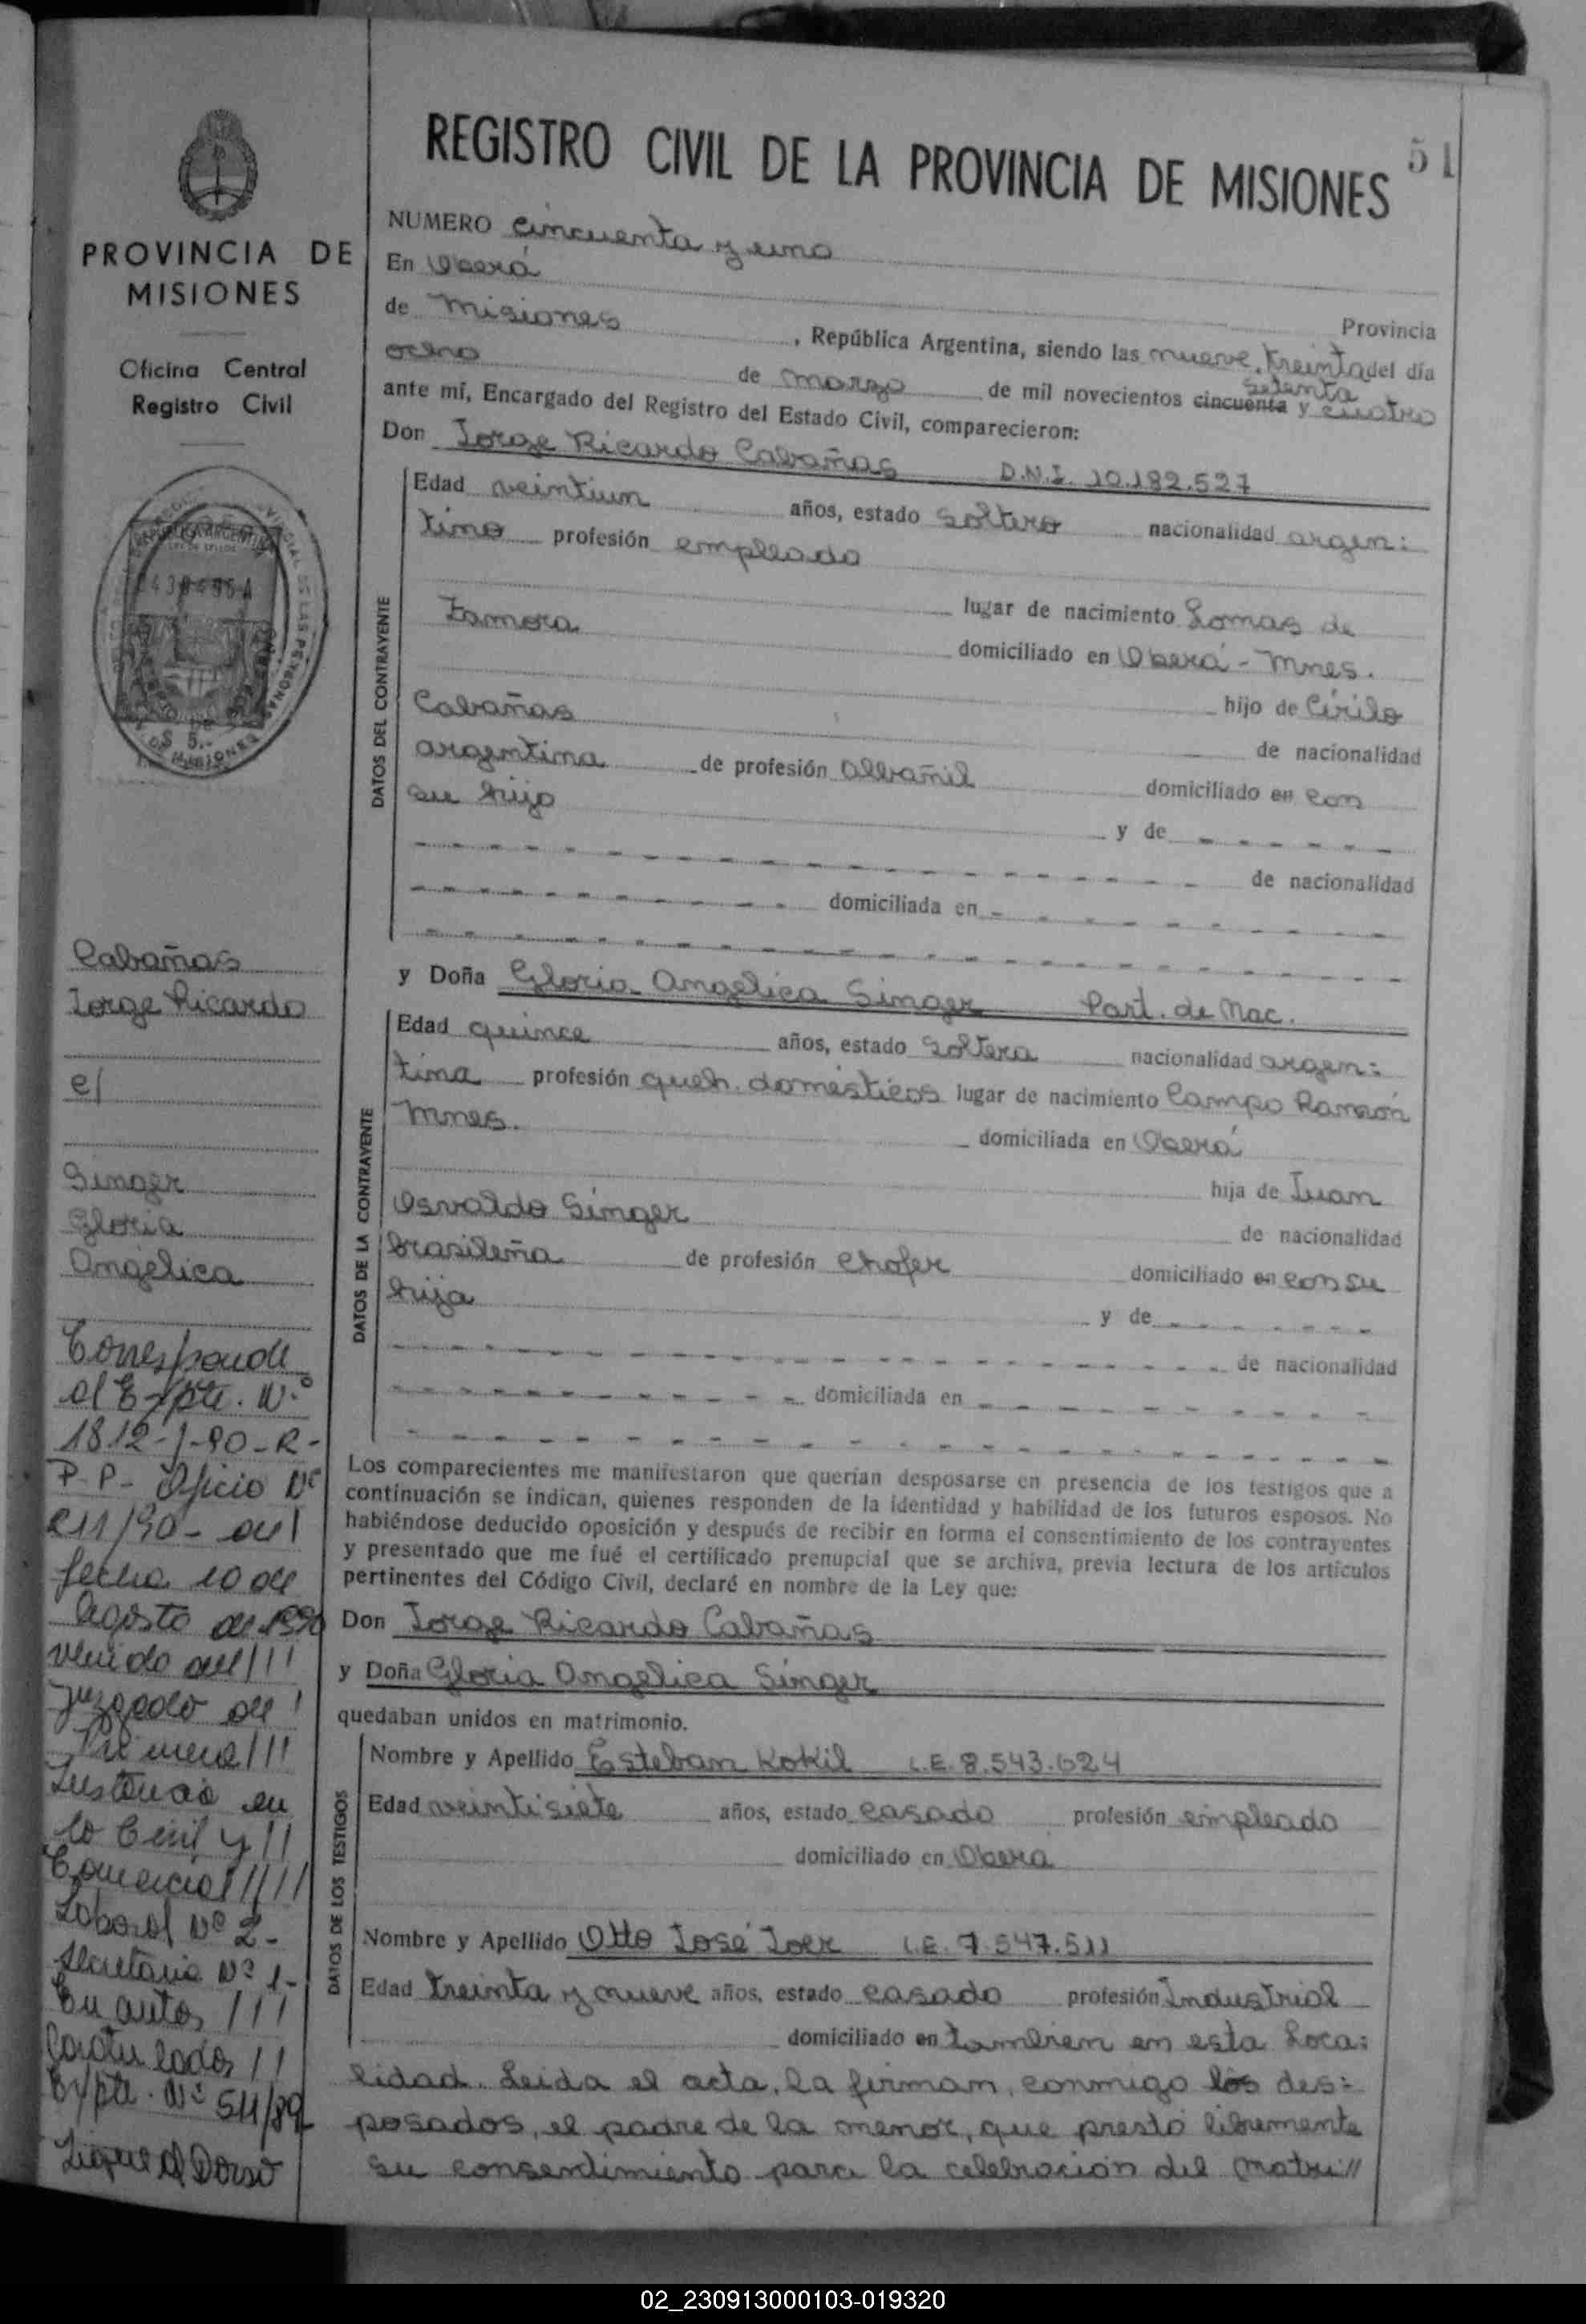 REGISTRO CIVIL DE LA PROVINCIA DE MISIONES
51
NUMERO cincuenta y uno
En Oberá
Provincia
de Misiones, República Argentina, siendo las nueve, treinta del día
ocho de marzo de mil novecientos cincuenta setenta y cuatro
ante mí, Encargado del Registro del Estado Civil, comparecieron:
Don Jorge Ricardo Cabañas D.N.I. 10.182.527
DATOS DEL CONTRAYENTE
Edad veintiun años, estado soltero nacionalidad argen:
tino profesión empleado
lugar de nacimiento Lomas de
Zamora
domiciliado en Oberá - Mnes.
hijo de Cirilo
Cabañas
de nacionalidad
argentina de profesión albañil domiciliado en con
su hijo
y de
de nacionalidad
domiciliada en
y Doña Gloria Angelica Singer Part. de Nac.
DATOS DE LA CONTRAYENTE
Edad quince años, estado soltera nacionalidad argen:
tina profesión queh. domésticos lugar de nacimiento Campo Ramón
Mnes.
domiciliada en Oberá
hija de Juan
Osvaldo Singer
de nacionalidad
brasileña de profesión chofer domiciliado en con su
hija
y de
de nacionalidad
domiciliada en
Los comparecientes me manifestaron que querían desposarse en presencia de los testigos que a
continuación se indican, quienes responden de la identidad y habilidad de los futuros esposos. No
habiéndose deducido oposición y después de recibir en forma el consentimiento de los contrayentes
y presentado que me fué el certificado prenupcial que se archiva, previa lectura de los artículos
pertinentes del Código Civil, declaré en nombre de la Ley que:
Don Jorge Ricardo Cabañas
y Doña Gloria Angelica Singer
quedaban unidos en matrimonio.
DATOS DE LOS TESTIGOS
Nombre y Apellido Esteban Kokil L.E. 8.543.624
Edad veintisiete años, estado casado profesión empleado
domiciliado en Oberá
Nombre y Apellido Otto José Joer L.E. 7.547.511
Edad treinta y nueve años, estado casado profesión Industrial
domiciliado en tambien en esta Loca:
lidad. Leida el acta, la firman, conmigo los des:
posados, el padre de la menor, que prestó libremente
su consentimiento para la celebración del matri//
PROVINCIA DE
MISIONES
Oficina Central
Registro Civil
REPUBLICA ARGENTINA
$ 5.-
Cabañas
Jorge Ricardo
c/
Singer
Gloria
Angélica
Corresponde
al Expte. Nº
1812-J-90-R-
P-P- Oficio Nº
211/90- del
fecha 10 de
Agosto de 1990
venido del///
Juzgado de /
Primera///
Instancia en
lo Civil y //
Comercial/////
Laboral Nº 2-
Secretaria Nº 1-
En autos ///
Caratulados //
Expte. Nº 511/89
Sigue al Dorso
02_230913000103-019320